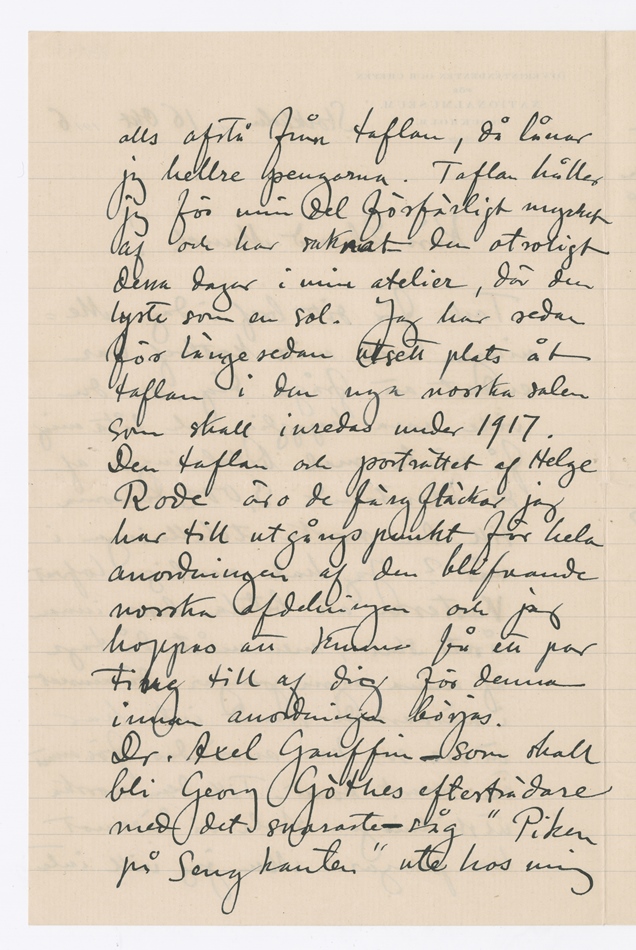 alls afstå från taflan, då lånar
jag hellre pengarna. Taflan håller
jag för min del förfärligt mycket
af och har saknat den otroligt
dessa dagar i min atelier, där den
lyste som en sol. Jag har sedan
för länge sedan utsett plats åt
taflan i den nya norska salen
som skall inredas under 1917.
Den taflan och porträttet af Helge
Rode äro de färgfläckar jag
har till utgångspunkt för hela
anordningen af den blifvande
norska afdelningen och jag
hoppas att kunna få ett par
ting till af dig för denna
innan anordningen börjas.
Dr. Axel Gauffin – som skall
bli Georg Göthes efterträdare
med det snaraste – såg "Piken
på Sengkanten" ute hos mig